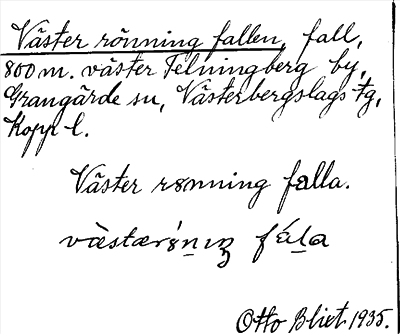 Väster rönning fallen, fall,
800 m. väster Telningberg by,
Grangärde sn, Västerbergslags tg,
Kopp. l.
Väster rønning falla.
våstærǿ́nɪŋ fála
Otto Bliet 1935.